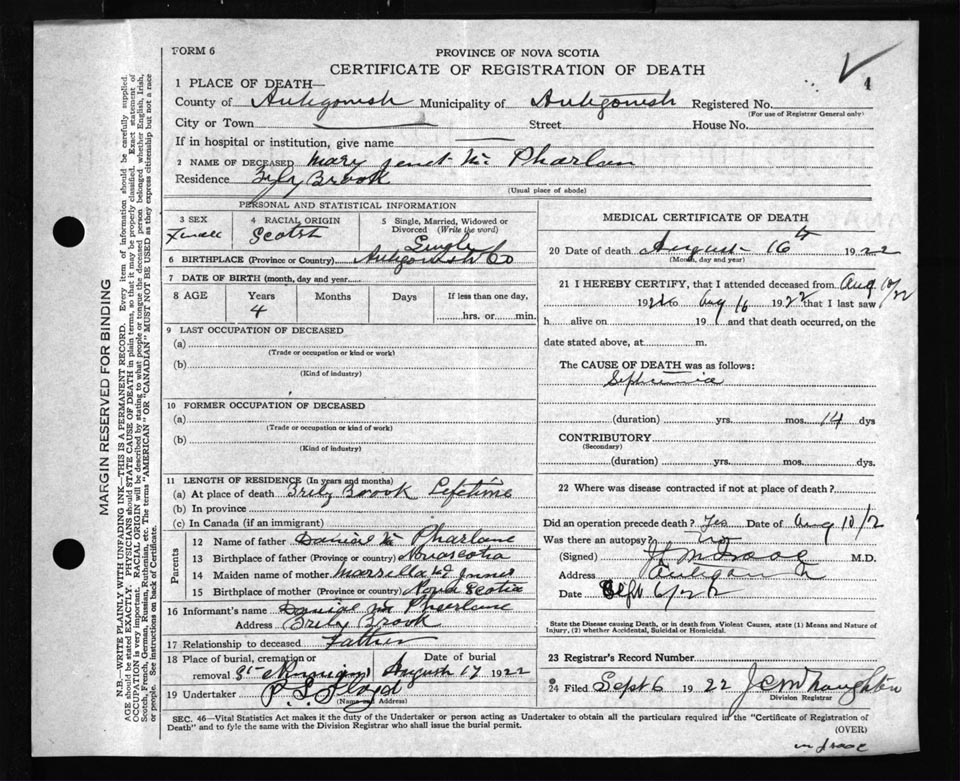 FORM 6
PROVINCE OF NOVA SCOTIA
CERTIFICATE OF REGISTRATION OF DEATH
4
1 PLACE OF DEATH—
County of Antigonish Municipality of Antigonish Registered No.
(For use of Registrar General only)
City or Town Street House No.
If in hospital or institution, give name
2 NAME OF DECEASED Mary Janet Mc Pharlan
Residence Brook
(Usual place of abode)
PERSONAL AND STATISTICAL INFORMATION
3 SEX Female
4 RACIAL ORIGIN Scotch
5 Single, Married, Widowed or Divorced (Write the word) Single
6 BIRTHPLACE (Province or Country) Antigonish Co
7 DATE OF BIRTH (month, day and year)
8 AGE Years Months Days If less than one day,
4 hrs. or min.
9 LAST OCCUPATION OF DECEASED
(a)
(Trade or occupation or kind or work)
(b)
(Kind of industry)
10 FORMER OCCUPATION OF DECEASED
(a)
(Trade or occupation or kind of work)
(b)
(Kind of industry)
11 LENGTH OF RESIDENCE (In years and months)
(a) At place of death Brook Lifetime
(b) In province
(c) In Canada (if an immigrant)
Parents
12 Name of father Daniel Mc Pharlane
13 Birthplace of father (Province or country) Novascotia
14 Maiden name of mother Mc Innes
15 Birthplace of mother (Province or country) Nova Scotia
16 Informant's name Daniel Mc Pharlane
Address Brook
17 Relationship to deceased Father
18 Place of burial, cremation or removal St Date of burial August 17 1922
19 Undertaker
(Name and Address)
MEDICAL CERTIFICATE OF DEATH
20 Date of death August 16th 1922
(Month, day and year)
21 I HEREBY CERTIFY, that I attended deceased from Aug 10/22
192 to Aug 16 1922 that I last saw
h alive on 19 and that death occurred, on
date stated above, at m.
The CAUSE OF DEATH was as follows:
(duration) yrs. mos. 14 dys
CONTRIBUTORY
(Secondary)
(duration) yrs. mos. dys.
22 Where was disease contracted if not at place of death?
Did an operation precede death? Yes Date of Aug 10/2
Was there an autopsy? No
(Signed) M.D.
Address
Date Sept 6/22
State the Disease causing Death, or in death from Violent Causes, state (1) Means and Nature of
Injury, (2) whether Accidental, Suicidal or Homicidal.
23 Registrar's Record Number
24 Filed Sept 6 1922
Division Registrar
SEC. 46—Vital Statistics Act makes it the duty of the Undertaker or person acting as Undertaker to obtain all the particulars required in the "Certificate of Registration of
Death" and to fyle the same with the Division Registrar who shall issue the burial permit.
(OVER)
MARGIN RESERVED FOR BINDING
N.B.—WRITE PLAINLY WITH UNFADING INK—THIS IS A PERMANENT RECORD. Every item of information should be carefully supplied.
AGE should be stated EXACTLY. PHYSICIANS should STATE CAUSE OF DEATH in plain terms, so that it may be properly classified. Exact statement of
OCCUPATION is very important. RACIAL ORIGIN will be described by stating to what people or tongue the deceased person belonged whether English, Irish,
Scotch, French, German, Russian, Ruthenian, etc. The terms "AMERICAN" OR "CANADIAN" MUST NOT BE USED as they express citizenship but not a race
or people. See instructions on back of Certificate.